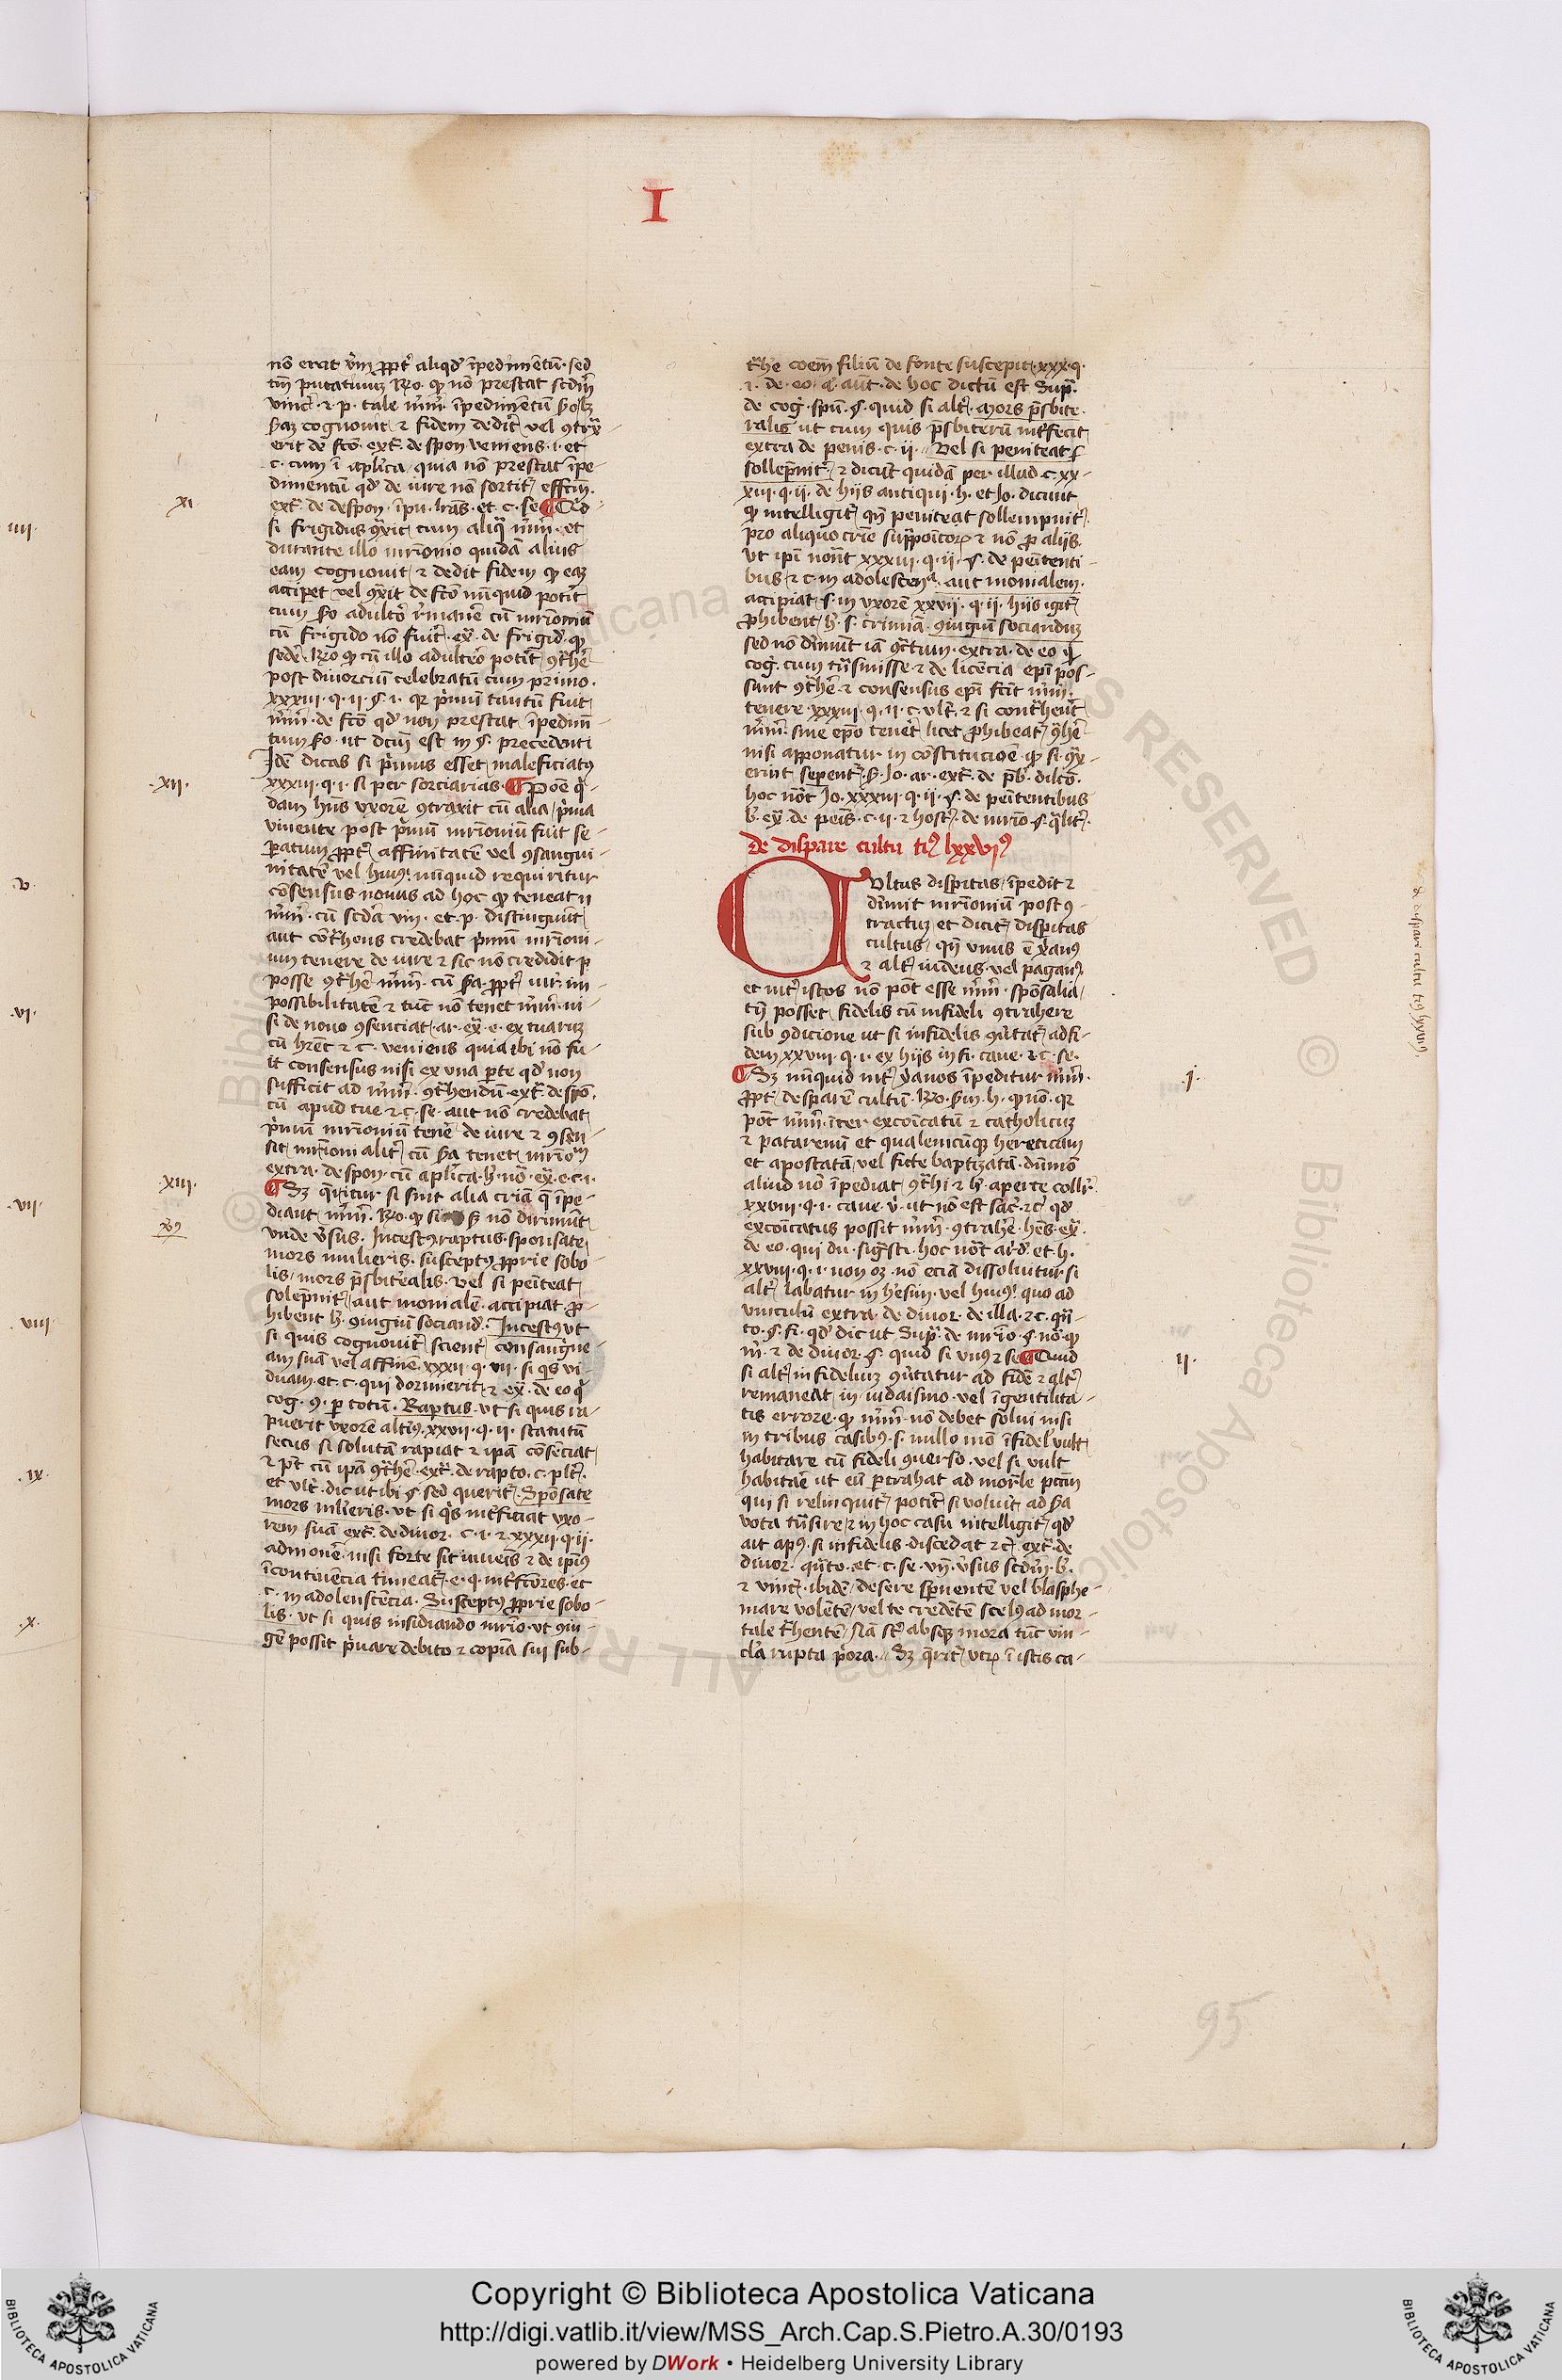 I
nō erat vm̄ ꝓpt̄ aliqd̕ īpedimētū · sed
tm̄ putatiuuȝ Rō · ꝙ nō prestat scdm̄
vinc̄ · ⁊ p · tale mr̄m̄ · īpedimētū
eaȝ cognouit ⁊ fidem dedit vel ꝯtrax̄
erit de fcō · ext̄ · de spon · veniens · i · et
c · cum ī aplica · quia nō prestat īpe-
dimentū qd̕ de iure nō sortit̄ effcm̄ ·
ext̄ · de despon · īpu · lr̄as · et c · se ¶ Sed
xi
si frigidus ꝯxit cum aliq̄ mr̄m̄ · et
durante illo mr̄imonio quidā alius
eam cognouit ⁊ dedit fidem ꝙ eaȝ
accipet vel ꝯxit de fcō nūquid potit̄
cum adultō rmanē cū mr̄imoniū
cū frigido nō fuit̄ · ex̄ · de frigid̕ · ꝙ
sedē · Rō ꝙ cū illo adulterō potit̄ ꝯt̄hē
post diuorciū celebratū cum primo ·
xxxiii · q · ii · § · i · qr p̄imū tantū fuit
mr̄m̄ · de fcō qd̕ non prestat īpedim̄-
tum · ut dcm̄ est in § · precedenti
Idē dicas si p̄imus esset maleficiatꝰ
xxxiii · q · i · si per sorciarias · ¶ Pōe q̄-
· xii ·
dam hn̄s vxorē ꝯtraxit cū alia p̄ma
viuente post p̄imū mr̄imoniū fuit se-
ꝑatum ꝓpt̄ affinitatē vel ꝯsangui-
nitatē vel huiꝰ · nūquid requiritur
cōsensus nouus ad hoc ꝙ teneat
mr̄m̄ · cū scda vin · et · p · distinguūt
aut cōt̄hens credebat p̄imū mr̄imoni-
um tenere de iure ⁊ sic nō credidit
posse ꝯt̄hē mr̄m̄ · cū ꝓpt̄ iur̄ im-
possibilitatē ⁊ tūc nō tenet mr̄m̄ · ni-
si de nouo ꝯsenciat · ar · ex̄ · e · ex tuarū
cū hr̄et ⁊ c · veniens quia ibi nō fu-
it consensus nisi ex vna ꝑte qd̕ non
sufficit ad mr̄m̄ · ꝯt̄hendū · ext̄ · de spō ·
cū apud tue ⁊ c · se · aut nō credebat
p̄imū mr̄imoniū tenē de iure ⁊ ꝯsen-
sit mr̄imonialit̄ cū tenet mr̄imō
extra · de spon · cū aplica · h̕ · nō · ex̄ · e · c · i ·
· xiii ·
¶ Sȝ q̄ritur si sint alia cria q̄ īpe-
diant mr̄m̄ · Rō · ꝙ si nō dirimūt
vnde v̄sus · Incestꝰ raptus · sponsate
mors mulieris · susceptꝰ ꝓprie sobo-
lis / mors p̄sbiteralis · Vel si peniteat
solēpnit̄ / aut monialē · accipiat · ꝓ-
hibent h̕ · ꝯiugiū sociand̕ · Incestꝰ vt
si quis cognouit̄ scient̄ consangine-
am suā vel affinē · xxxii · q · vii · si qs̄ vi-
duam · et · c · qui dormierit · ⁊ ex̄ · de eo q̄
cog · ꝯ · ꝑ totū · Raptus · vt si quis ra-
puerit vxorē altiꝰ · xxvii · q · ii · statutū
secus si solutā rapiat ⁊ ipā cōsenciat
⁊ p̄t cū ipā ꝯt̄hē · ext̄ · de rapto · c · plt̄ ·
et vlt̄ · dic ut ibi § sed querit̄ · Spōsate
mors ml̄ieris · vt si q̄s int̄ficiat vxo-
rem suā ext̄ · de diuor · c · i · ⁊ xxxii · q · ii ·
admonē · nisi forte sit iuuenīs ⁊ de ipiꝰ
īcontinēcia timeat̄ · e · q · int̄fcōres · et
c · in adolenscēcia · Susceptꝰ ꝓprie sobo-
lis · vt si quis insidiando mr̄io · vt ꝯiu-
gē possit p̄uare debito ⁊ copiā sui sub-
t̄he coem̄ filiū de fonte suscepit · xxx · q ·
i · de · eo · q̄ · aūt · de hoc dictū est Sup̄ ·
de cog̕ · spū · § · quid si alt̄ · Mors p̄sbite-
ralis ut cum quis p̄sbiterū int̄fecit
extra de penis · c · ii · Vel si peniteat
sollēpnit̄ · ⁊ dicūt quidā per illud · c · xx-
xiii · q · ii · de hiis antiqui · h · et Jo · dicūt
ꝙ intelligit̄ qn̄ peniteat sollempnit̄ ·
pro aliquo crīe ⁊ nō ꝓ aliis ·
vt ipī nōt xxxiii · q · ii · § · de penitenti-
bus ⁊ c · in adolescen̄ · aut monialem ·
accipiat · s · in vxorē xxvii · q · ii · hiis igit̄
ꝓhibent h̕ · s · crimiā · ꝯiugiū sociandū
sed nō dirimūt iā ꝯt̄ctum · extra · de eo q̄
cog̕ · cum t̄nsmisse · ⁊ de licēcia epī pos-
sunt ꝯt̄hē · ⁊ consensus epī fcit mr̄m̄ ·
tenere · xxxiii · q · ii · c · vlt̄ · ⁊ si cont̄hent
mr̄m̄ · sine epō tenet̄ licet ꝓhibeat̄ ꝯt̄hē
nisi apponatur in cōstitucioē · ꝙ si · ꝯx̄-
erint sepent̄ · Jo · ar · ext̄ · de p̄b̕ · dilcō ·
hoc nōt Jo · xxxiii · q · ii · § · de penitentibus
b̕ · ex̄ · de penis̄ · c · ii · ⁊ host̄ · de mr̄io · § · q̄lit̄ ·
de dispare cultu tiꝰ lxxviꝰ
Cultus disꝑitas / īpedit ⁊
dirimit mr̄imoniū post ꝯ-
tractuȝ / et dicit̄ disꝑitas
cultus / qn̄ vnus ē x̄ianꝰ
⁊ alt̄ iudeus · vel paganꝰ
et int̄ istos nō pōt esse mr̄m̄ · spōsalia /
tn̄ posset / fidelis cū infideli ꝯtrahere
sub ꝯdicione ut si infidelis ꝯūtat̄ ad fi-
dem xxviii · q · i · ex hiis in fi · caue · ⁊ c · se ·
¶ Sȝ nūquid int̄ x̄ianos īpeditur mr̄m̄ ·
· j ·
ꝓpt̄ desparē cultū · Rō · h · ꝙ nō · qr
pōt mr̄m̄ · īter excōicatū ⁊ catholicuȝ
⁊ patarenū et qualemcūqȝ hereticam
et apostatā / vel ficte baptizatā · dūmō
aliud nō īpediat · ꝯt̄hi ⁊ h̕ · aperte colli ·
xxviii · q · i · caue · v̄ · ut nō est sac̄ · ⁊c̄ qd̕
excōicatus possit mr̄m̄ · ꝯtrahē · hēs · ex̄ ·
de eo · qui du · sigsti · hoc nōt ard̕ · et · h ·
xxviii · q · i · non oȝ · nō eciā dissoluitur · si
alt̄ labatur in hesim · vel huiꝰ · quo ad
vinculū extra · de diuor · de illa · ⁊ c · qn̄-
to · § · fi · qd̕ dic ut Sup̄ · de mr̄io · § · nō · ꝙ
m̄ · ⁊ de diuor · § · quid si vnꝰ ⁊ se ¶ Quid
ij ·
si alt̄ infideliuȝ ꝯūtatur ad fidē ⁊ alt̄
remaneat in iudaismo · vel īgentilita-
tis errore · ꝙ mr̄m̄ · nō debet solui nisi
in tribus casibꝰ · s · nullo mō īfidel̕ vult
habitare cū fideli ꝯuerso · vel si vult
habitaē ut eū ꝑtrahat ad morale pctm̄
qui si relinquit̄ / potit̄ si voluit ad
vota t̄nsire / ⁊ in hoc casu intelligit̄ / qd̕
ait apꝰ · si infidelis · discedat ⁊ c̄ · ext̄ · de
diuor · qn̄to · et · c · se · vn̄ · v̄sus scdm̄ · b̕ ·
⁊ vinc̄ · ibidē / desere spnentē vel blasphe-
mare volētē / vel te credētē scelꝰ ad mor-
tale t̄hentē / Nā sic̄ absqȝ mora tūc vin-
cla rupta p̄ora · Sȝ q̄rit̄ vtȝ ī istis ca-
de dispari cultu tiꝰ lxxviꝰ
95
· iiij ·
· v ·
· vi ·
· vii ·
· viii ·
· ix ·
· x ·
Copyright © Biblioteca Apostolica Vaticana
http://digi.vatlib.it/view/MSS_Arch.Cap.S.Pietro.A.30/0193
powered by DWork • Heidelberg University Library
BIBLIOTECA APOSTOLICA VATICANA
BIBLIOTECA APOSTOLICA VATICANA